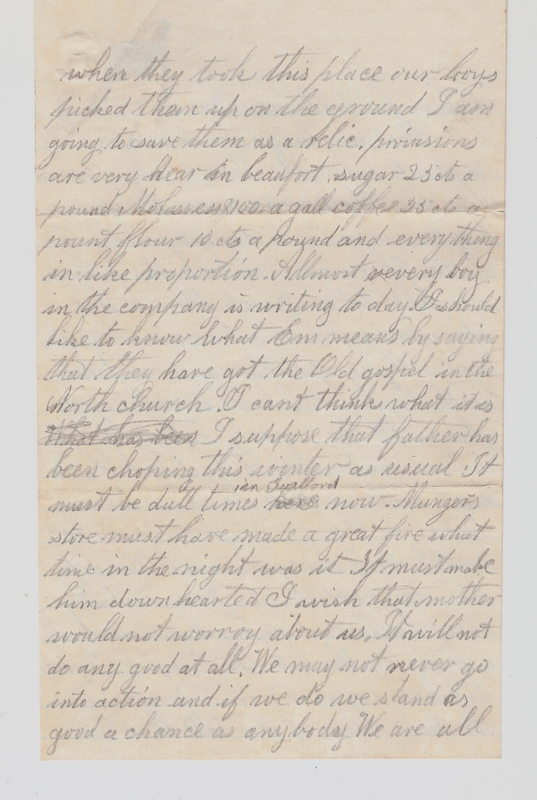 when they took this place our boys
picked them up on the ground I am
going to save them as a relic. provisions
are very dear in beaufort. sugar 25 cts a
pound Molasses $1.00 a gall coffee 35 cts a
pount fflour 10 cts a pound and every thing
in like proportion. Allmost every boy
in the company is writing to day. I should
like to know what Em means by saying
that they have got the Old gospel in the
North church. I cant think what it is
What has been I suppose that father has
been choping this winter as usual It
must be dull times in Guilford here now. Mungers
store must have made a great fire what
time in the night was it It must make
him down hearted I wish that mother
would not worroy about us, It will not
do any good at all. We may not never go
into action and if we do we stand as
good a chance as any body We are all